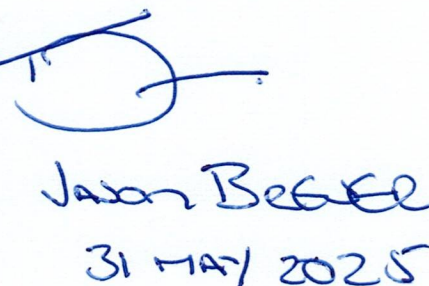 Jason Brewer
31 MAY 2025